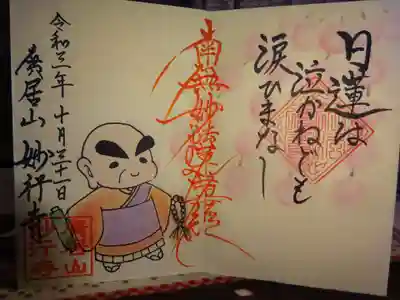 日蓮は
泣かねども
涙ひまなし
南無妙法蓮華経
令和二年 十月三十一日
廣居山 妙行寺